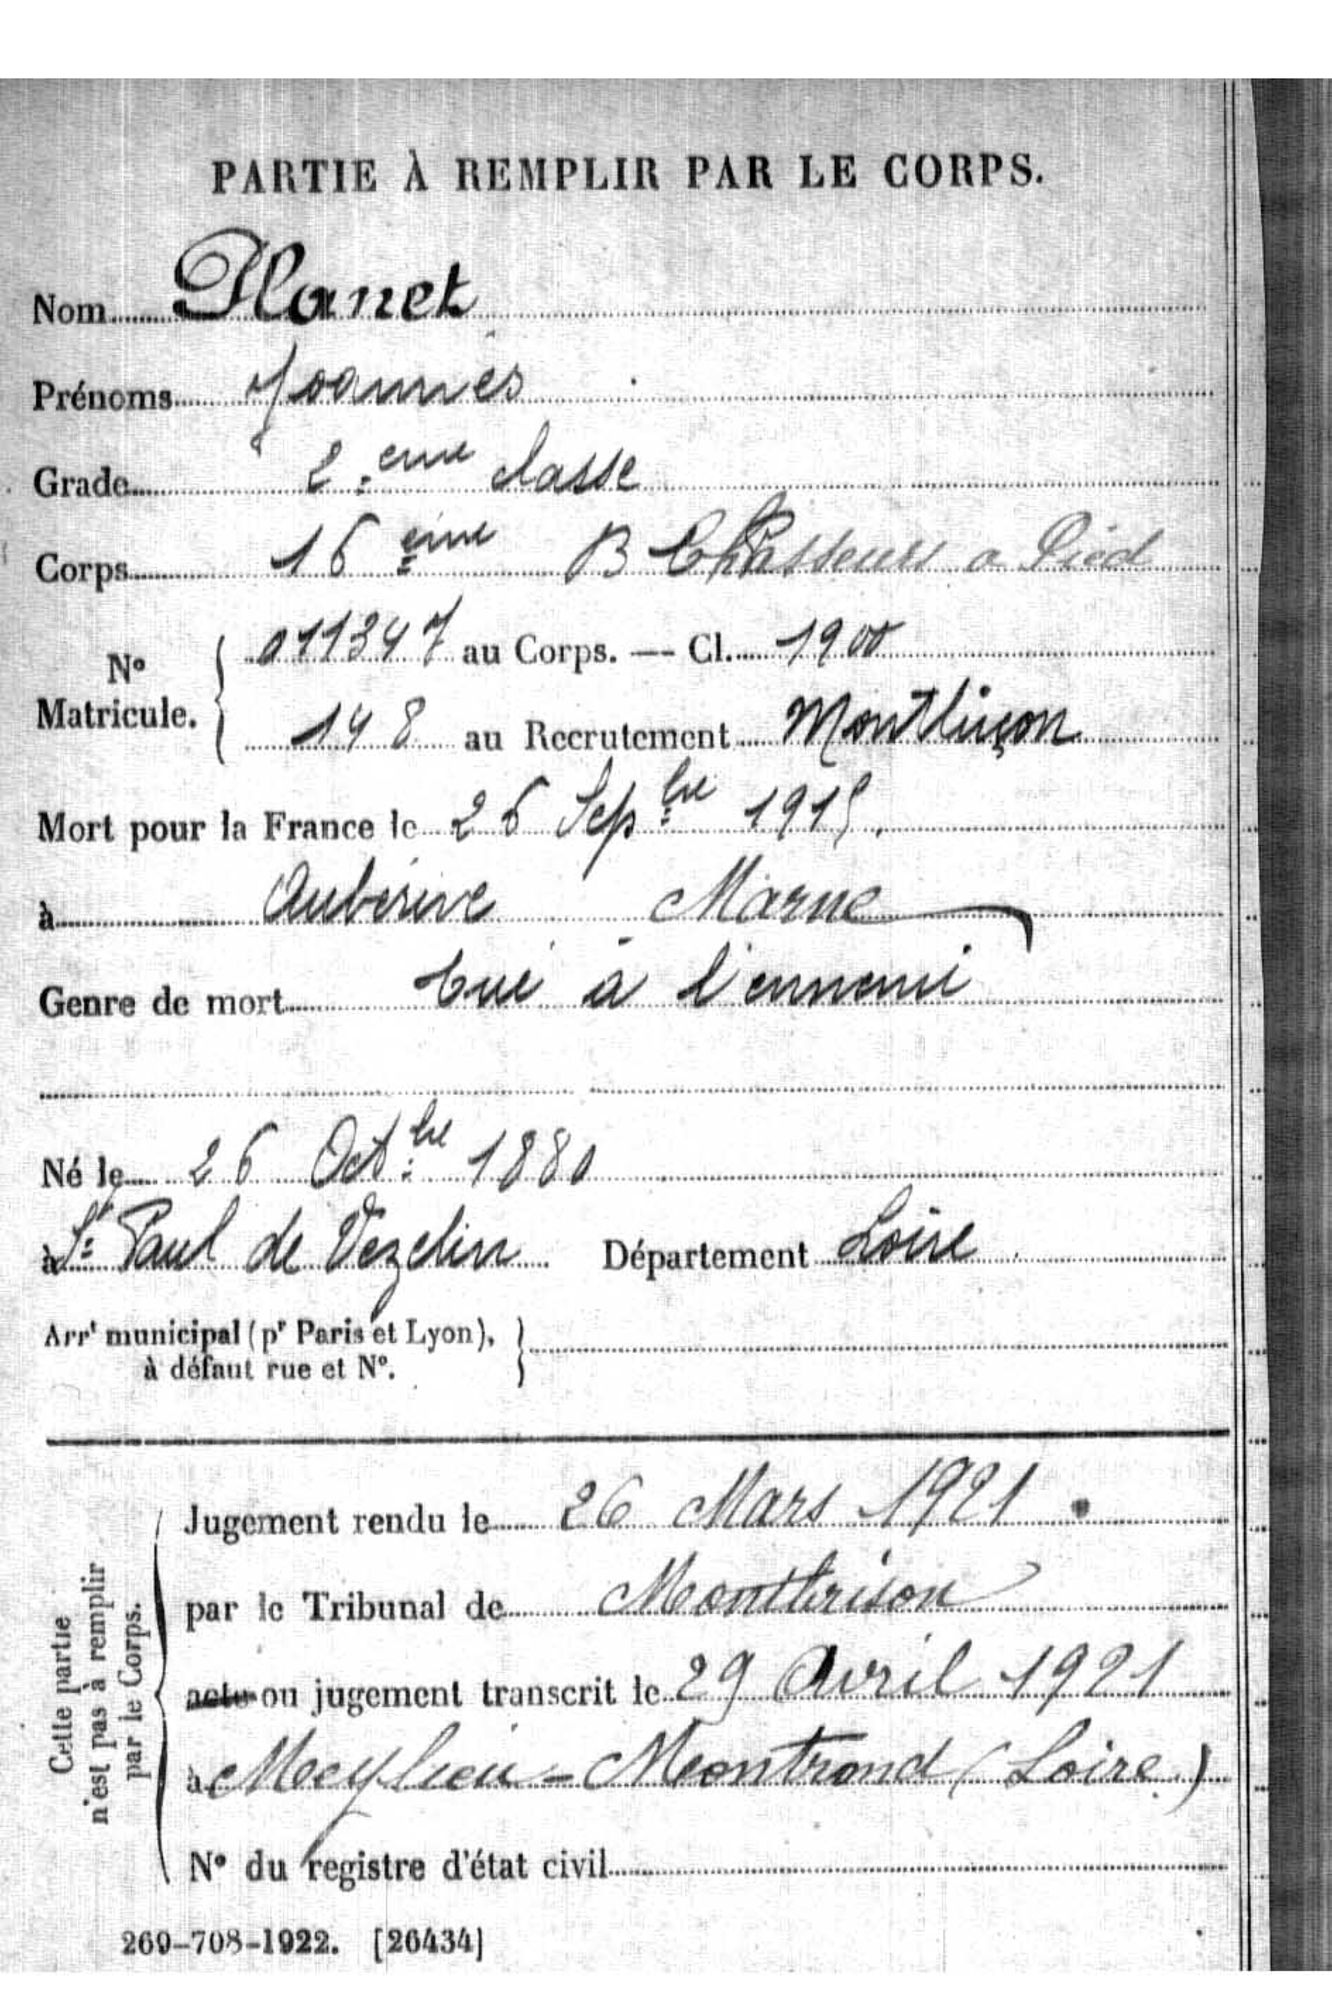 PARTIE À REMPLIR PAR LE CORPS.
Nom Planet
Prénoms Joannès
Grade 2.ème classe
Corps 16 ème B Chasseurs a Pied
N° Matricule. { 011347 au Corps. — Cl. 1900
148 au Recrutement Montluçon
Mort pour la France le 26 Sepbre 1915.
à Aubérive Marne
Genre de mort tué à l'ennemi
Né le 26 Octbre 1880
à St Paul de Vezelin Département Loire
Arrt municipal (pr Paris et Lyon), }
à défaut rue et N°.
Cette partie
n'est pas à remplir
par le Corps.
Jugement rendu le 26 Mars 1921
par le Tribunal de Montbrison
acte ou jugement transcrit le 29 Avril 1921
à Meylieu-Montrond (Loire)
N° du registre d'état civil
269-708-1922. [26434]